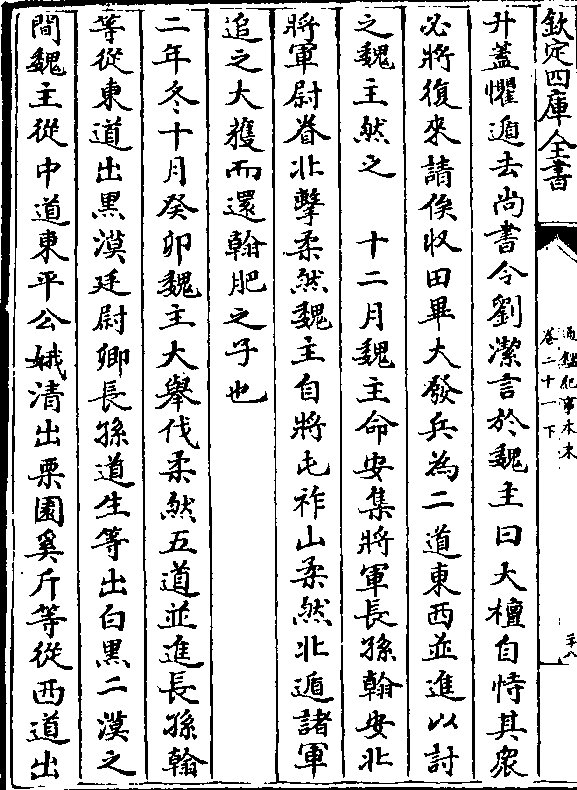 欽定四庫全書
通鑑紀事本末
卷二十一下
升蓋懼遁去尚書令劉潔言於魏主曰大檀自恃其衆
必將復來請俟收田畢大發兵為二道東西並進以討
之魏主然之　十二月魏主命安集將軍長孫翰安北
將軍尉眷北擊柔然魏主自將屯祚山柔然北遁諸軍
追之大獲而還翰肥之子也
二年冬十月癸卯魏主大舉伐柔然五道並進長孫翰
等從東道出黒漠廷尉卿長孫道生等出白黒二漠之
間魏主從中道東平公娥清出栗園奚斤等從西道出